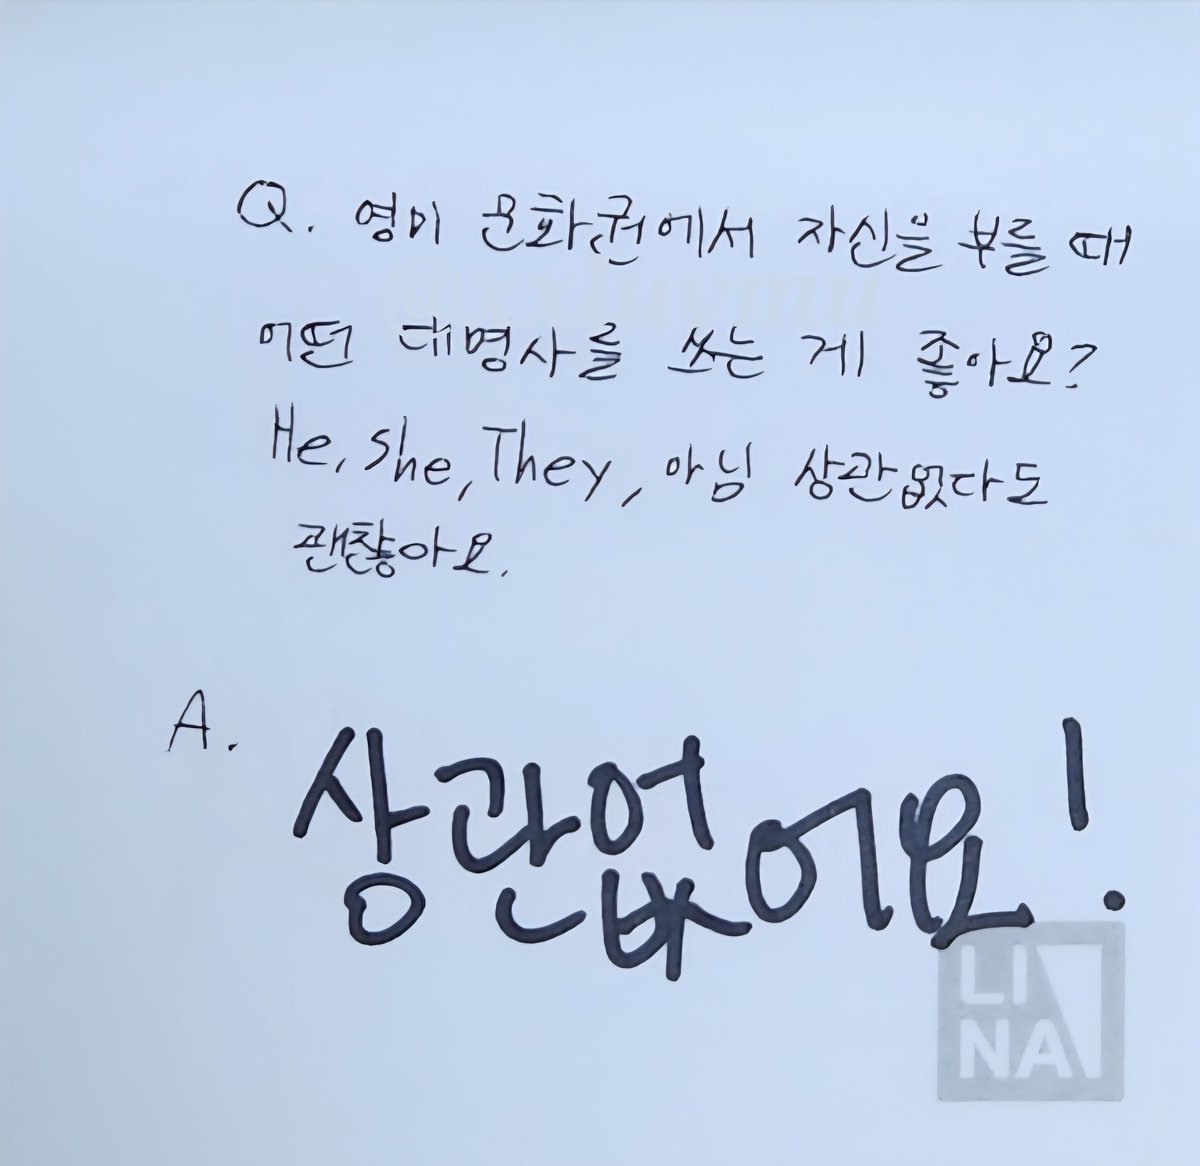 Q. 영미 문화권에서 자신을 부를 때
어떤 대명사를 쓰는 게 좋아요?
He, She, They, 아님 상관없다도
괜찮아요.
A. 상관없어요!
LI
NA